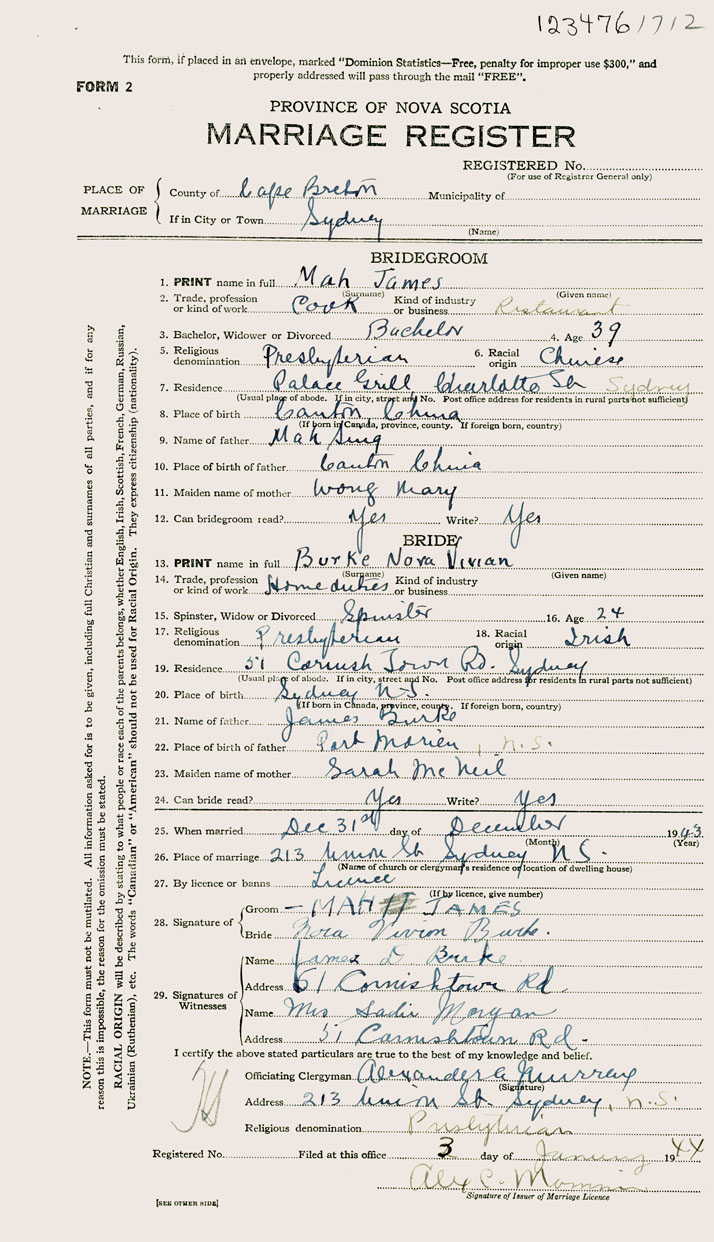 123476 1712
This form, if placed in an envelope, marked "Dominion Statistics—Free, penalty for improper use $300," and
properly addressed will pass through the mail "FREE".
FORM 2
PROVINCE OF NOVA SCOTIA
MARRIAGE REGISTER
REGISTERED No.
(For use of Registrar General only)
PLACE OF MARRIAGE
County of Cape Breton Municipality of
If in City or Town Sydney
(Name)
BRIDEGROOM
1. PRINT name in full Mah James
(Surname) (Given name)
2. Trade, profession or kind of work Cook Kind of industry or business Restaurant
3. Bachelor, Widower or Divorced Bachelor 4. Age 39
5. Religious denomination Presbyterian 6. Racial origin Chinese
7. Residence Palace Grill Charlotte St. Sydney
(Usual place of abode. If in city, street and No. Post office address for residents in rural parts not sufficient)
8. Place of birth Canton China
(If born in Canada, province, county. If foreign born, country)
9. Name of father Mah Sing
10. Place of birth of father Canton China
11. Maiden name of mother Wong Mary
12. Can bridegroom read? Yes Write? Yes
BRIDE
13. PRINT name in full Burke Nora Vivian
(Surname) (Given name)
14. Trade, profession or kind of work Home duties Kind of industry or business
15. Spinster, Widow or Divorced Spinster 16. Age 24
17. Religious denomination Presbyterian 18. Racial origin Irish
19. Residence 51 Cornish Town Rd. Sydney
(Usual place of abode. If in city, street and No. Post office address for residents in rural parts not sufficient)
20. Place of birth Sydney N.S.
(If born in Canada, province, county. If foreign born, country)
21. Name of father James Burke
22. Place of birth of father Port Morien, N.S.
23. Maiden name of mother Sarah McNeil
24. Can bride read? Yes Write? Yes
25. When married Dec 31st day of December 1943
(Month) (Year)
26. Place of marriage 213 Union St Sydney N S.
(Name of church or clergyman's residence or location of dwelling house)
27. By licence or banns Licence
(If by licence, give number)
28. Signature of
Groom — MAH JAMES
Bride Nora Vivion Burke.
29. Signatures of Witnesses
Name James D Burke
Address 51 Cornishtown Rd
Name Mrs Sadie Morgan
Address 51 Cornishtown Rd.
I certify the above stated particulars are true to the best of my knowledge and belief.
Officiating Clergyman Alexander Murray
(Signature)
Address 213 Union St. Sydney, N.S.
Religious denomination Presbyterian
Registered No. Filed at this office 3 day of January 1944
Alex C.
Signature of Issuer of Marriage Licence
[SEE OTHER SIDE]
NOTE.—This form must not be mutilated. All information asked for is to be given, including full Christian and surnames of all parties, and if for any
reason this is impossible, the reason for the omission must be stated.
RACIAL ORIGIN will be described by stating to what people or race each of the parents belongs, whether English, Irish, Scottish, French, German, Russian,
Ukrainian (Ruthenian), etc. The words "Canadian" or "American" should not be used for Racial Origin. They express citizenship (nationality).